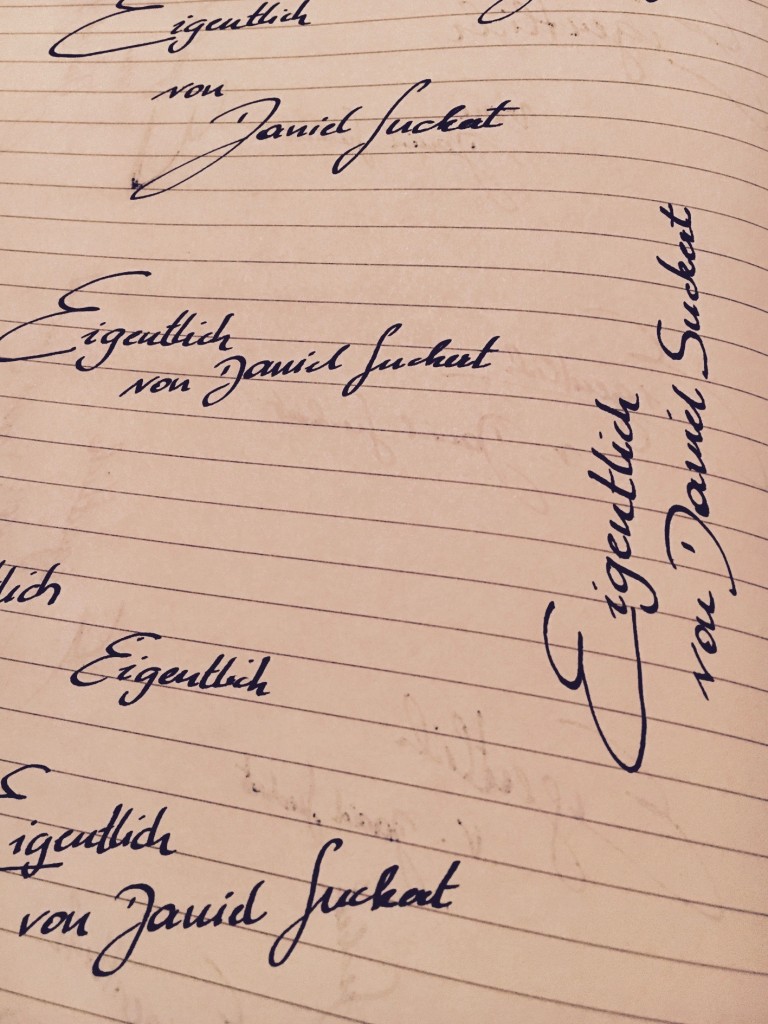 Eigentlich
von
Daniel Suckert
Eigentlich
von Daniel Suckert
Eigentlich
von Daniel Suckert
tlich
Eigentlich
Eigentlich
von Daniel Suckert